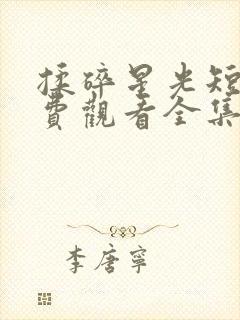 揉碎星光短
費觀看全集
李唐寧